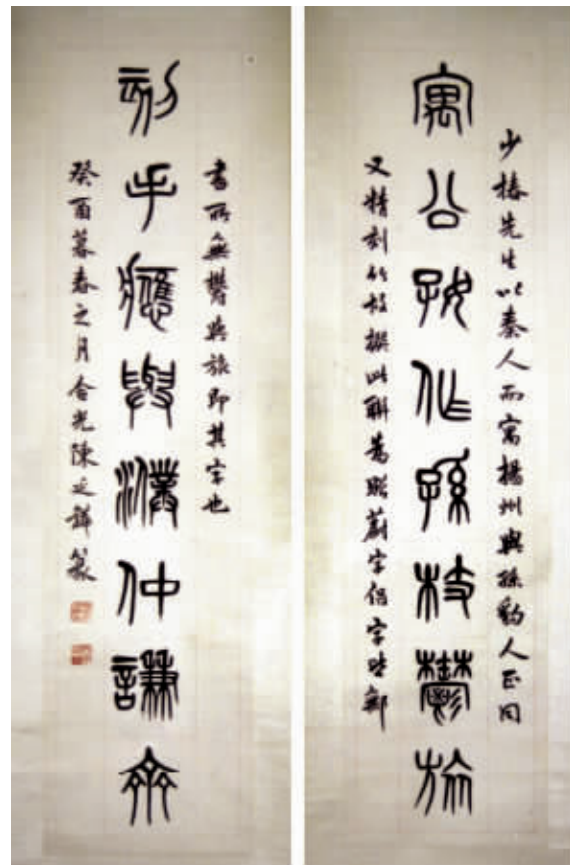 少椿先生以秦人而寓揚州與孫豹人正同
寓公好作孫枝鬱旅
又精刻竹故撰此聯為贈蔚字侣字皆鄦
書所無鬱與旅即其字也
刻手應與濮仲謙齊
癸酉暮春之月含光陳延韡篆